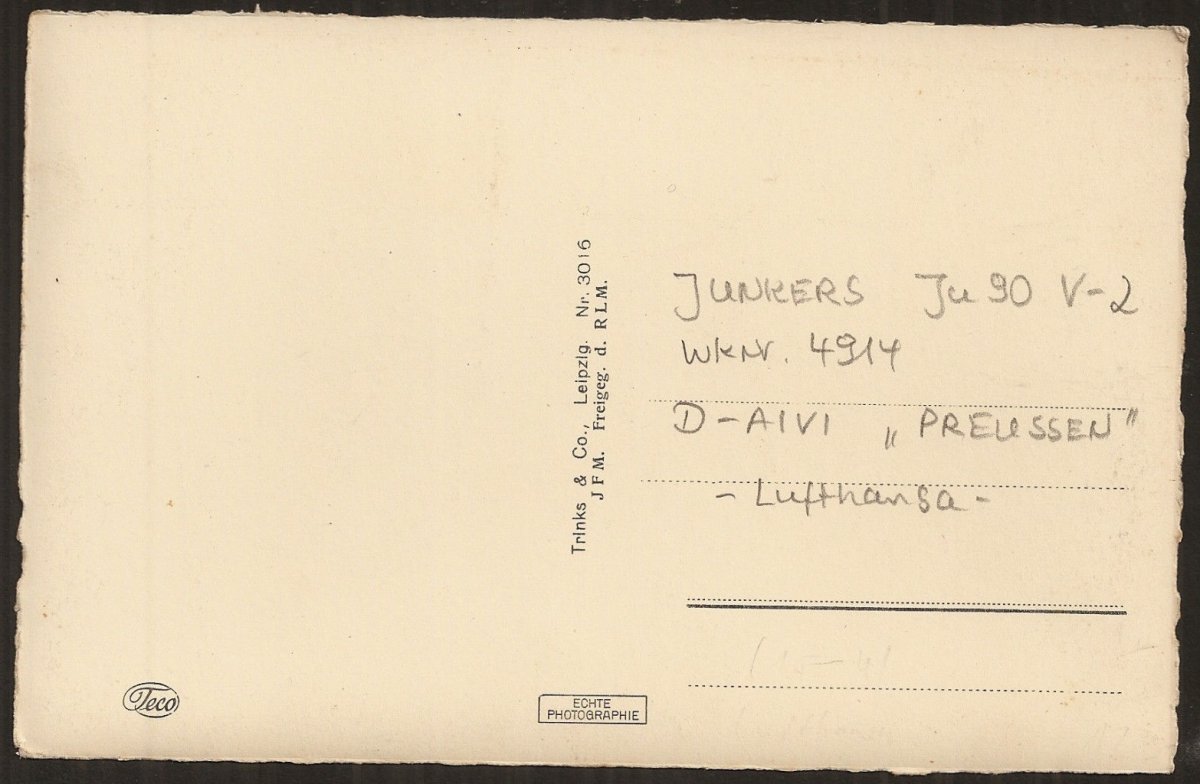 Trinks & Co., Leipzig. Nr. 3016
JFM. Freigeg. d. RLM.
JUNKERS Ju 90 V-2
WkNr. 4914
D-AIVI „PREUSSEN"
- Lufthansa -
Teco
ECHTE
PHOTOGRAPHIE